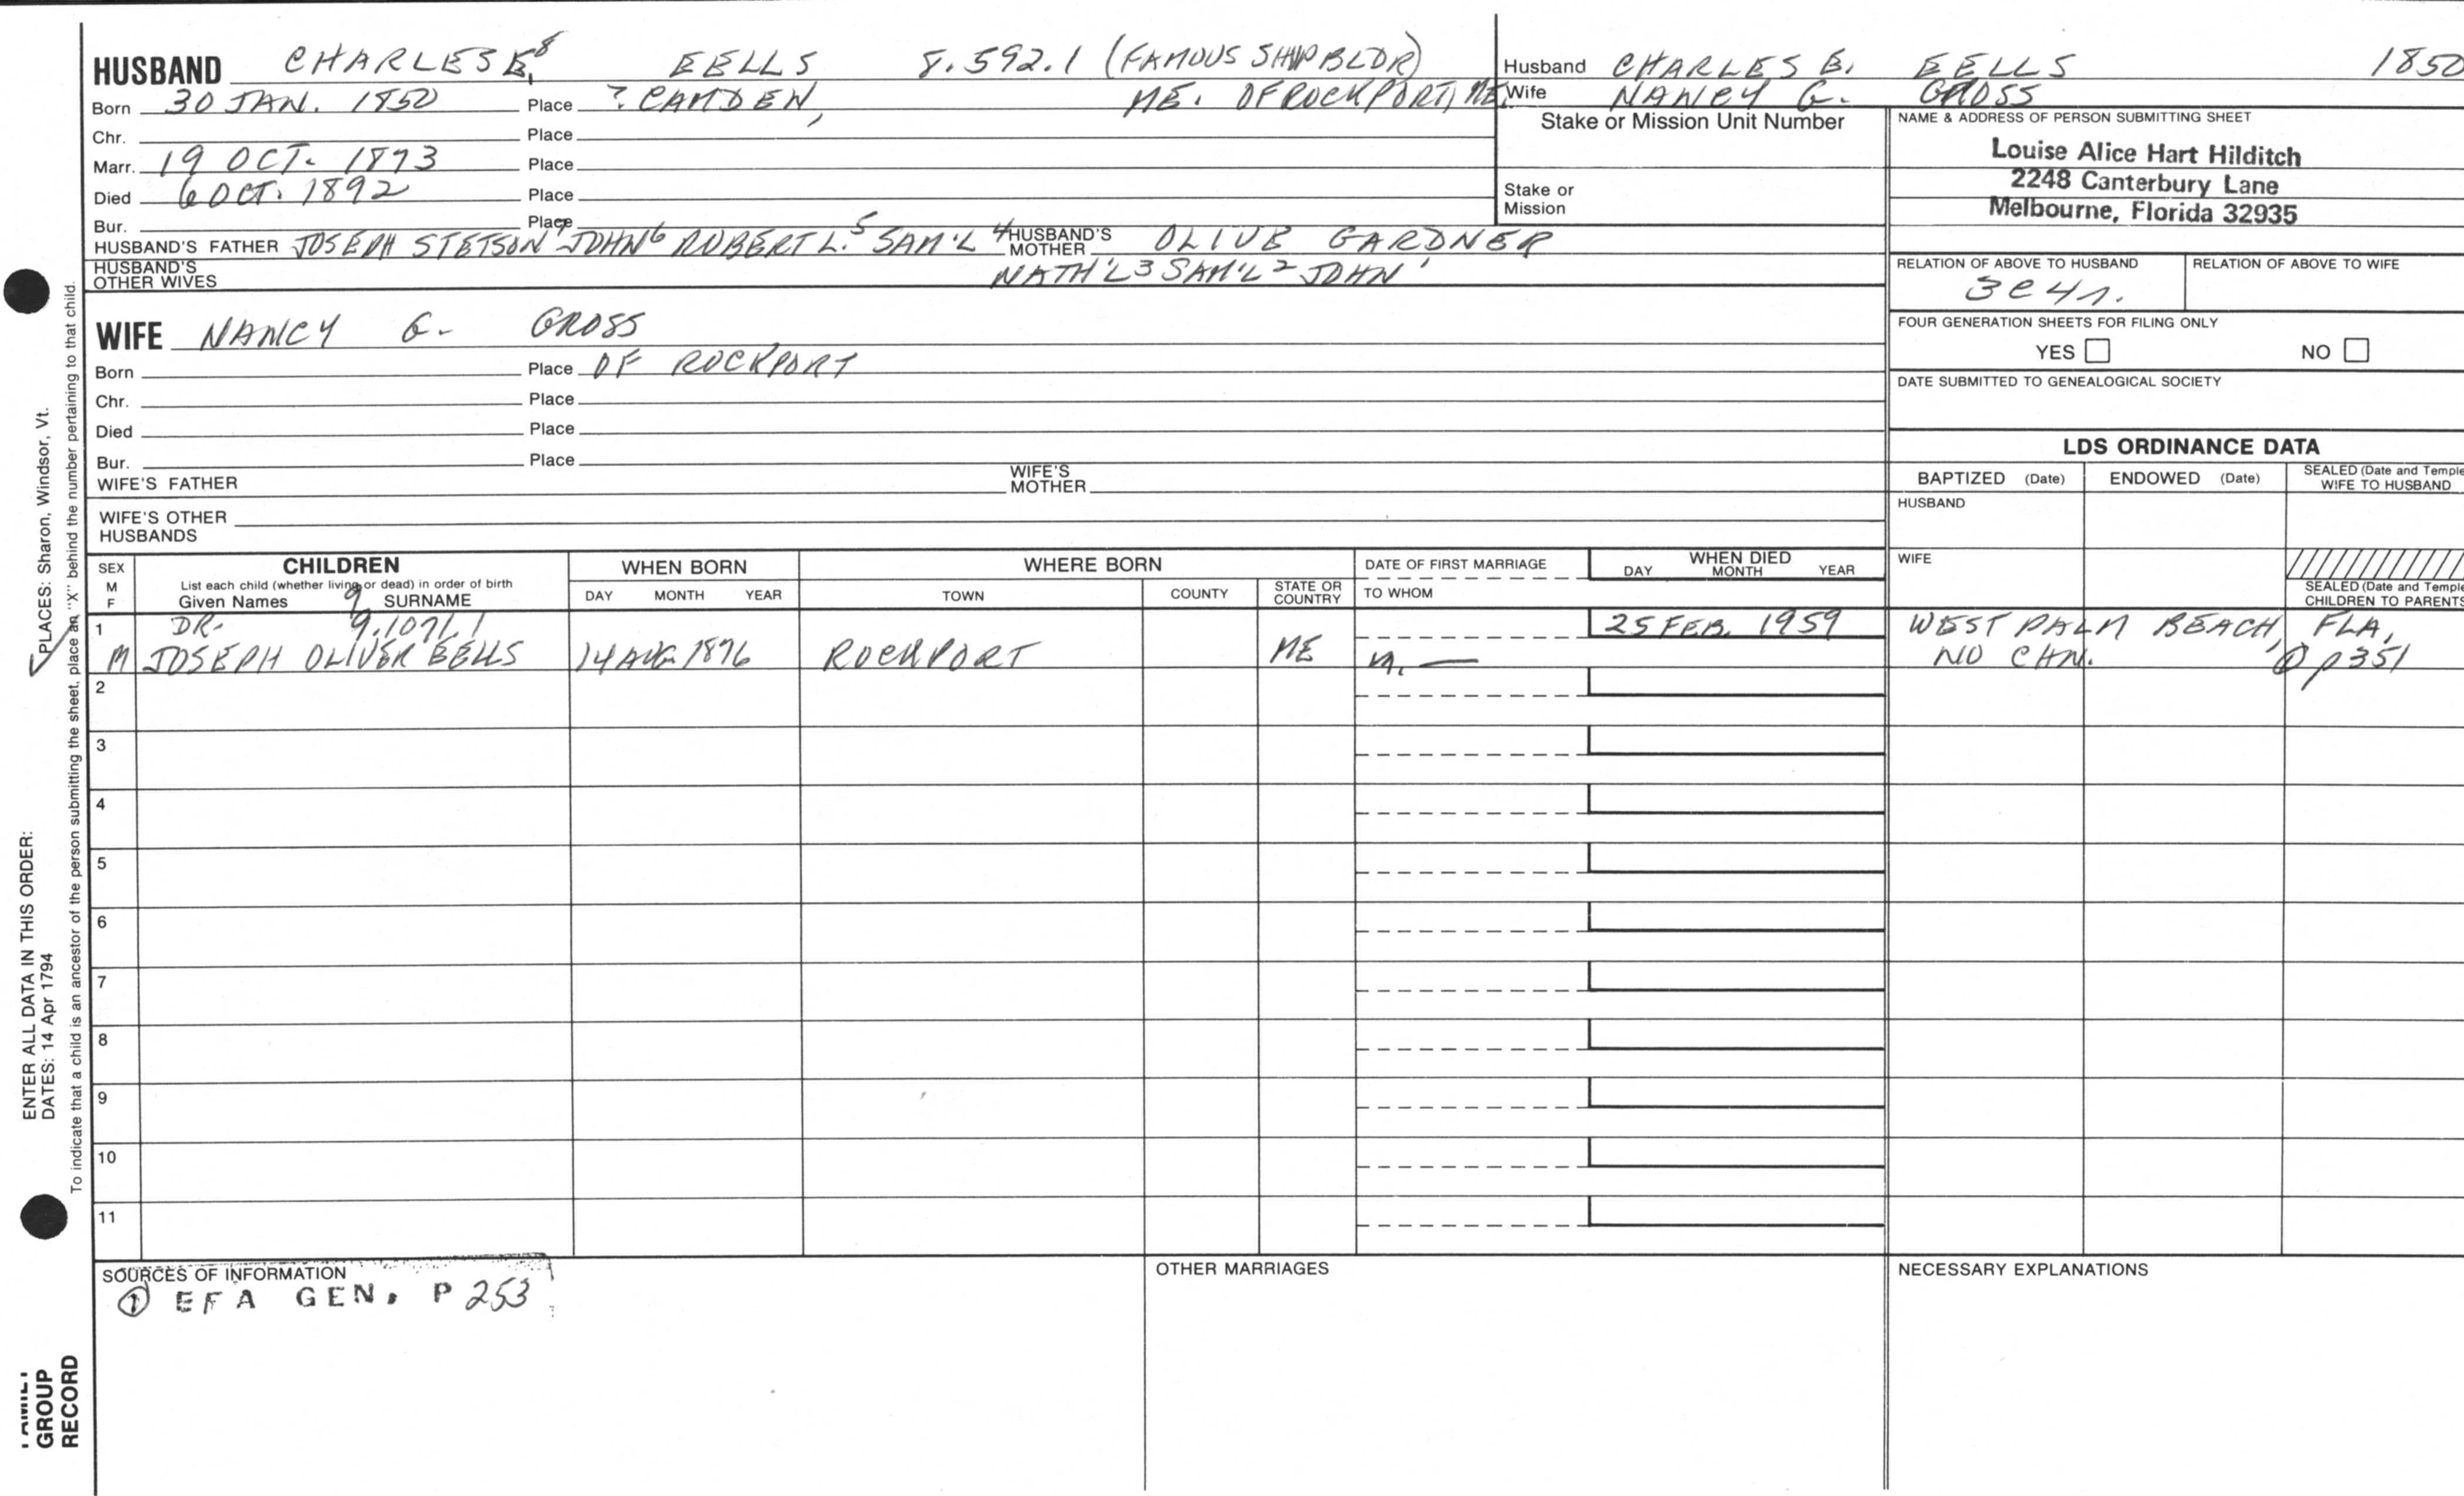 HUSBAND CHARLES E.⁸ EELLS 8.592.1 (FAMOUS SHIPBLDR)
Born 30 JAN. 1850 Place ? CAMDEN, ME. OF ROCKPORT, ME.
Chr. Place
Marr. 19 OCT. 1873 Place
Died 6 OCT. 1892 Place
Bur. Place
HUSBAND'S FATHER JOSEPH STETSON⁷ JOHN⁶ ROBERT L.⁵ SAM'L⁴ HUSBAND'S MOTHER OLIVE GARDNER
HUSBAND'S OTHER WIVES NATH'L³ SAM'L² JOHN¹
WIFE NANCY G. GROSS
Born Place OF ROCKPORT
Chr. Place
Died Place
Bur. Place
WIFE'S FATHER WIFE'S MOTHER
WIFE'S OTHER HUSBANDS
Husband CHARLES E. EELLS 1850
Wife NANCY G. GROSS
Stake or Mission Unit Number
Stake or Mission
NAME & ADDRESS OF PERSON SUBMITTING SHEET
Louise Alice Hart Hilditch
2248 Canterbury Lane
Melbourne, Florida 32935
RELATION OF ABOVE TO HUSBAND RELATION OF ABOVE TO WIFE
3C4r.
FOUR GENERATION SHEETS FOR FILING ONLY
YES NO
DATE SUBMITTED TO GENEALOGICAL SOCIETY
LDS ORDINANCE DATA
BAPTIZED (Date) ENDOWED (Date) SEALED (Date and Temple) WIFE TO HUSBAND
HUSBAND
WIFE
SEALED (Date and Temple) CHILDREN TO PARENTS
SEX M F
CHILDREN
List each child (whether living or dead) in order of birth
Given Names 9 SURNAME
WHEN BORN
DAY MONTH YEAR
WHERE BORN
TOWN COUNTY STATE OR COUNTRY
DATE OF FIRST MARRIAGE
TO WHOM
WHEN DIED
DAY MONTH YEAR
1 DR. 9.1071.1 25 FEB. 1959 WEST PALM BEACH, FLA.
M JOSEPH OLIVER EELLS 14 AUG. 1876 ROCKPORT ME m. — NO CHN. p351
2
3
4
5
6
7
8
9
10
11
SOURCES OF INFORMATION
① EFA GEN. P 253
OTHER MARRIAGES
NECESSARY EXPLANATIONS
ENTER ALL DATA IN THIS ORDER:
DATES: 14 Apr 1794
PLACES: Sharon, Windsor, Vt.
To indicate that a child is an ancestor of the person submitting the sheet, place an "X" behind the number pertaining to that child.
FAMILY
GROUP
RECORD